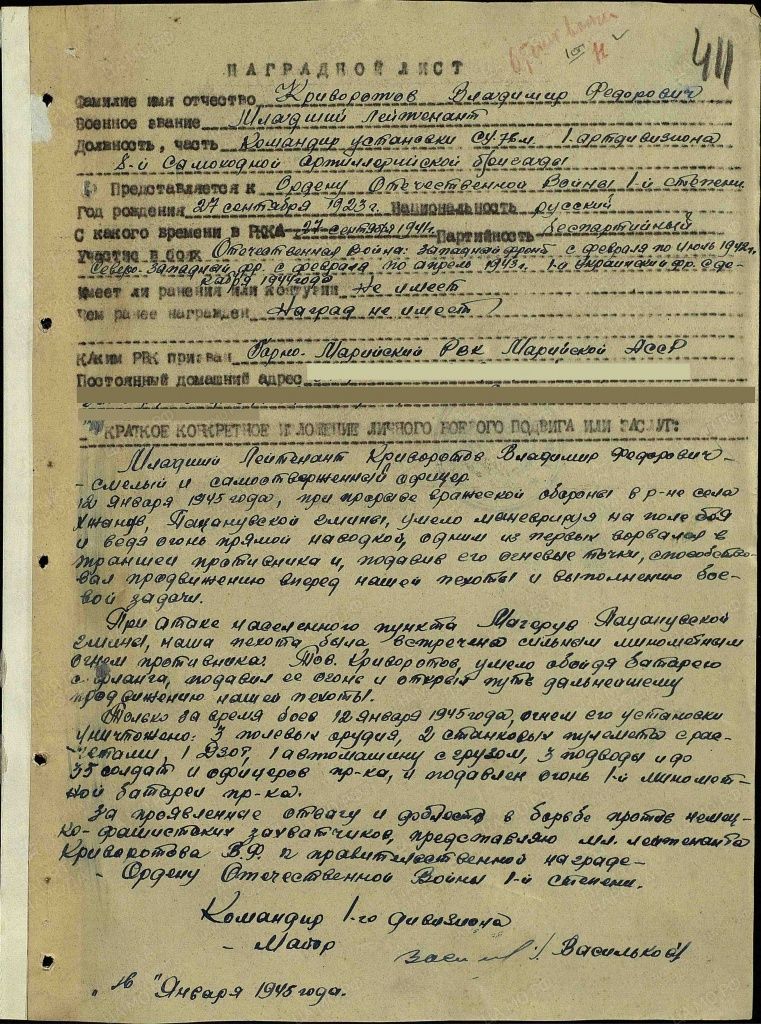 411
НАГРАДНОЙ ЛИСТ
Фамилие имя отчество Криворотов Владимир Федорович
Военное звание Младший Лейтенант
Должность, часть Командир установки СУ-76м 1-артдивизиона
8-й Самоходной артиллерийской бригады
Представляется к Ордену Отечественной Войны 1-й степени
Год рождения 27 сентября 1923 г. Национальность русский
С какого времени в РККА 27 сентября 1941г. Партийность Беспартийный
Участие в боях Отечественная Война: Западный фронт с февраля по июль 1942г.
Северо-Западный фр. с февраля по апрель 1943г. 1-й Украинский фр. с де-
кабря 1944 года
Имеет ли ранения или контузии Не имеет
Чем ранее награжден Наград не имеет
Каким РВК призван Горно-Марийский РВК Марийской АССР
Постоянный домашний адрес
КРАТКОЕ КОНКРЕТНОЕ ИЗЛОЖЕНИЕ ЛИЧНОГО БОЕВОГО ПОДВИГА ИЛИ ЗАСЛУГ:
Младший Лейтенант Криворотов Владимир Федорович-
- смелый и самоотверженный офицер.
12 января 1945 года, при прорыве вражеской обороны в р-не села
Хжанув, Пацанувской гмины, умело маневрируя на поле боя
и ведя огонь прямой наводкой, одним из первых ворвался в
траншеи противника и, подавив его огневые точки, способство-
вал продвижению вперед нашей пехоты и выполнению бое-
вой задачи.
При атаке населенного пункта Магерув Пацанувской
гмины, наша пехота была встречена сильным минометным
огнем противника. Тов. Криворотов, умело обойдя батарею
с фланга, подавил ее огонь и открыл путь дальнейшему
продвижению нашей пехоты.
Только за время боев 12 января 1945 года, огнем его установки
уничтожено: 3 полевых орудия, 2 станковых пулемета с рас-
четами, 1 Дзот, 1 автомашину с грузом, 3 подводы и до
35 солдат и офицеров пр-ка, и подавлен огонь 1-й миномет-
ной батареи пр-ка.
За проявленные отвагу и доблесть в борьбе против немец-
ко-фашистских захватчиков, представляю мл. лейтенанта
Криворотова В.Ф. к правительственной награде-
- Ордену Отечественной Войны 1-й степени.
Командир 1-го дивизиона
- Майор /Васильков/
"16" Января 1945 года.